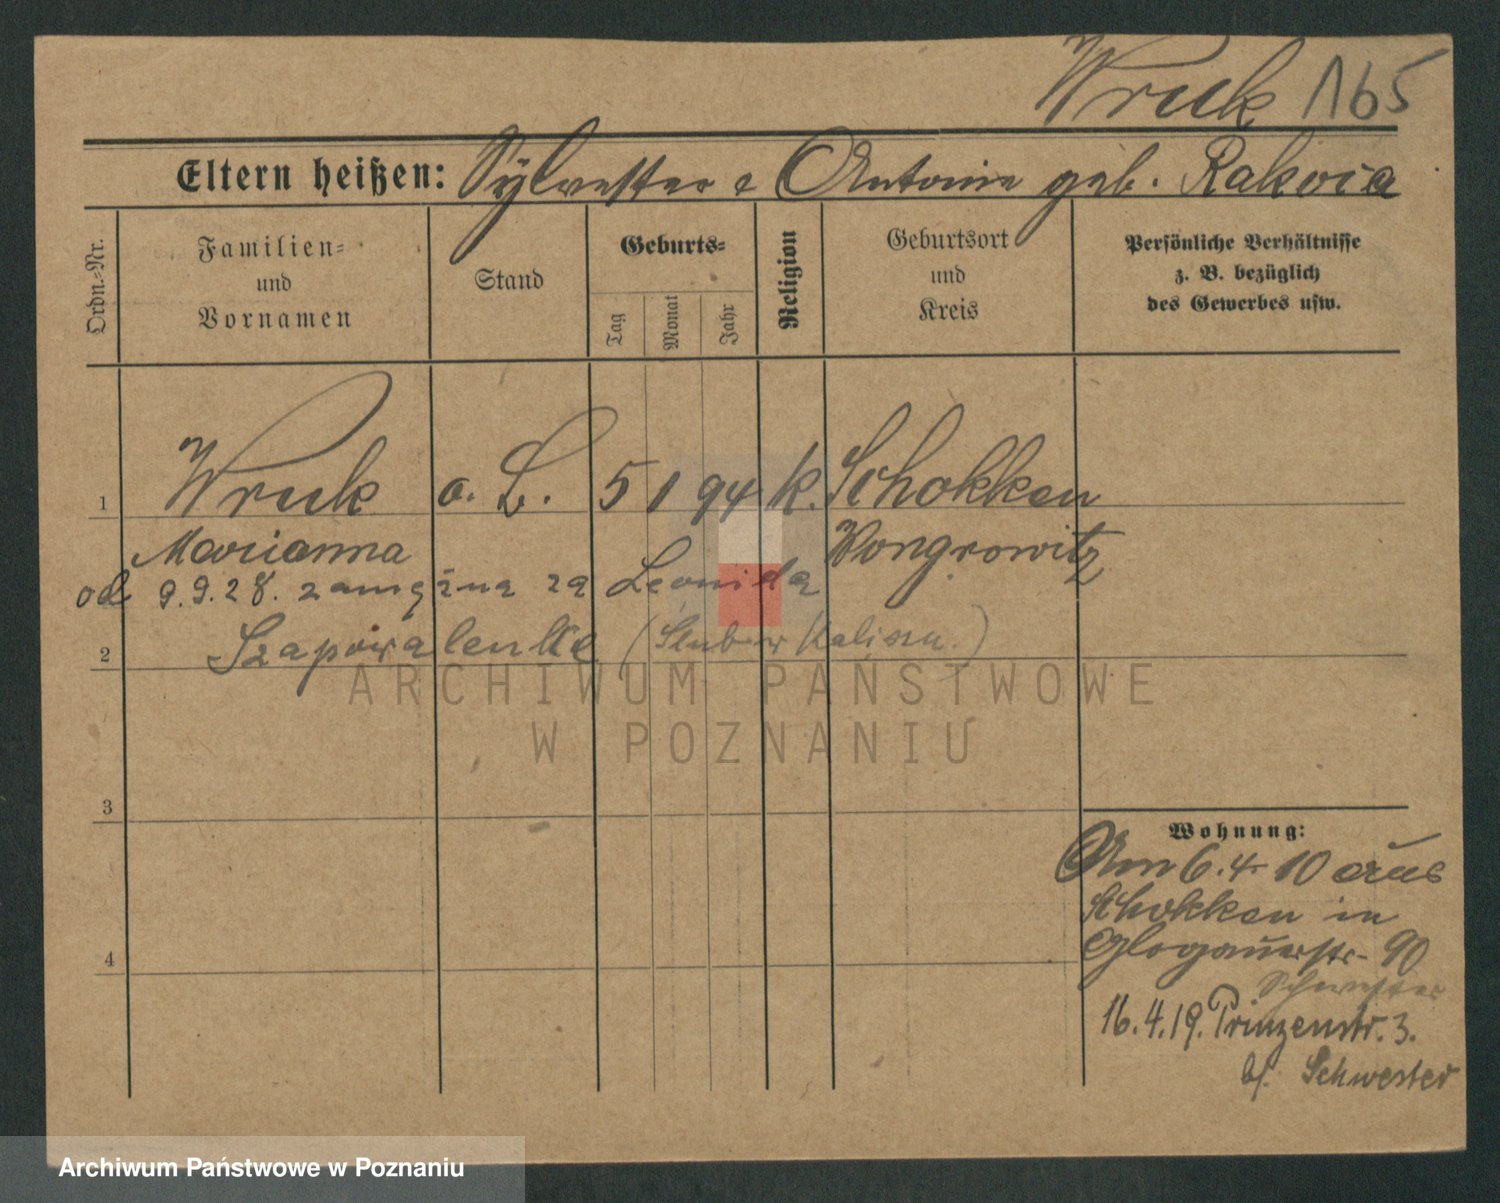 Wruk 165
Eltern heißen: Sylvester e Antonie geb. Rakvia
Ordn.-Nr.
Familien-
und
Vornamen
Stand
Geburts-
Tag
Monat
Jahr
Religion
Geburtsort
und
Kreis
Persönliche Verhältnisse
z. B. bezüglich
des Gewerbes usw.
1 Wruk o. B. 5 1 94 k. Schokken
Marianna Wongrowitz
od 9.9.28. zamężna za Leonida
2 Szapowalenke (Ślub w Kaliszu.)
ARCHIWUM PAŃSTWOWE
W POZNANIU
3
Wohnung:
Am 6.4.10 aus
Schokken in
4 Glogauerstr. 90
Schwester
16.4.19. Prinzenstr. 3.
bf. Schwester
Archiwum Państwowe w Poznaniu